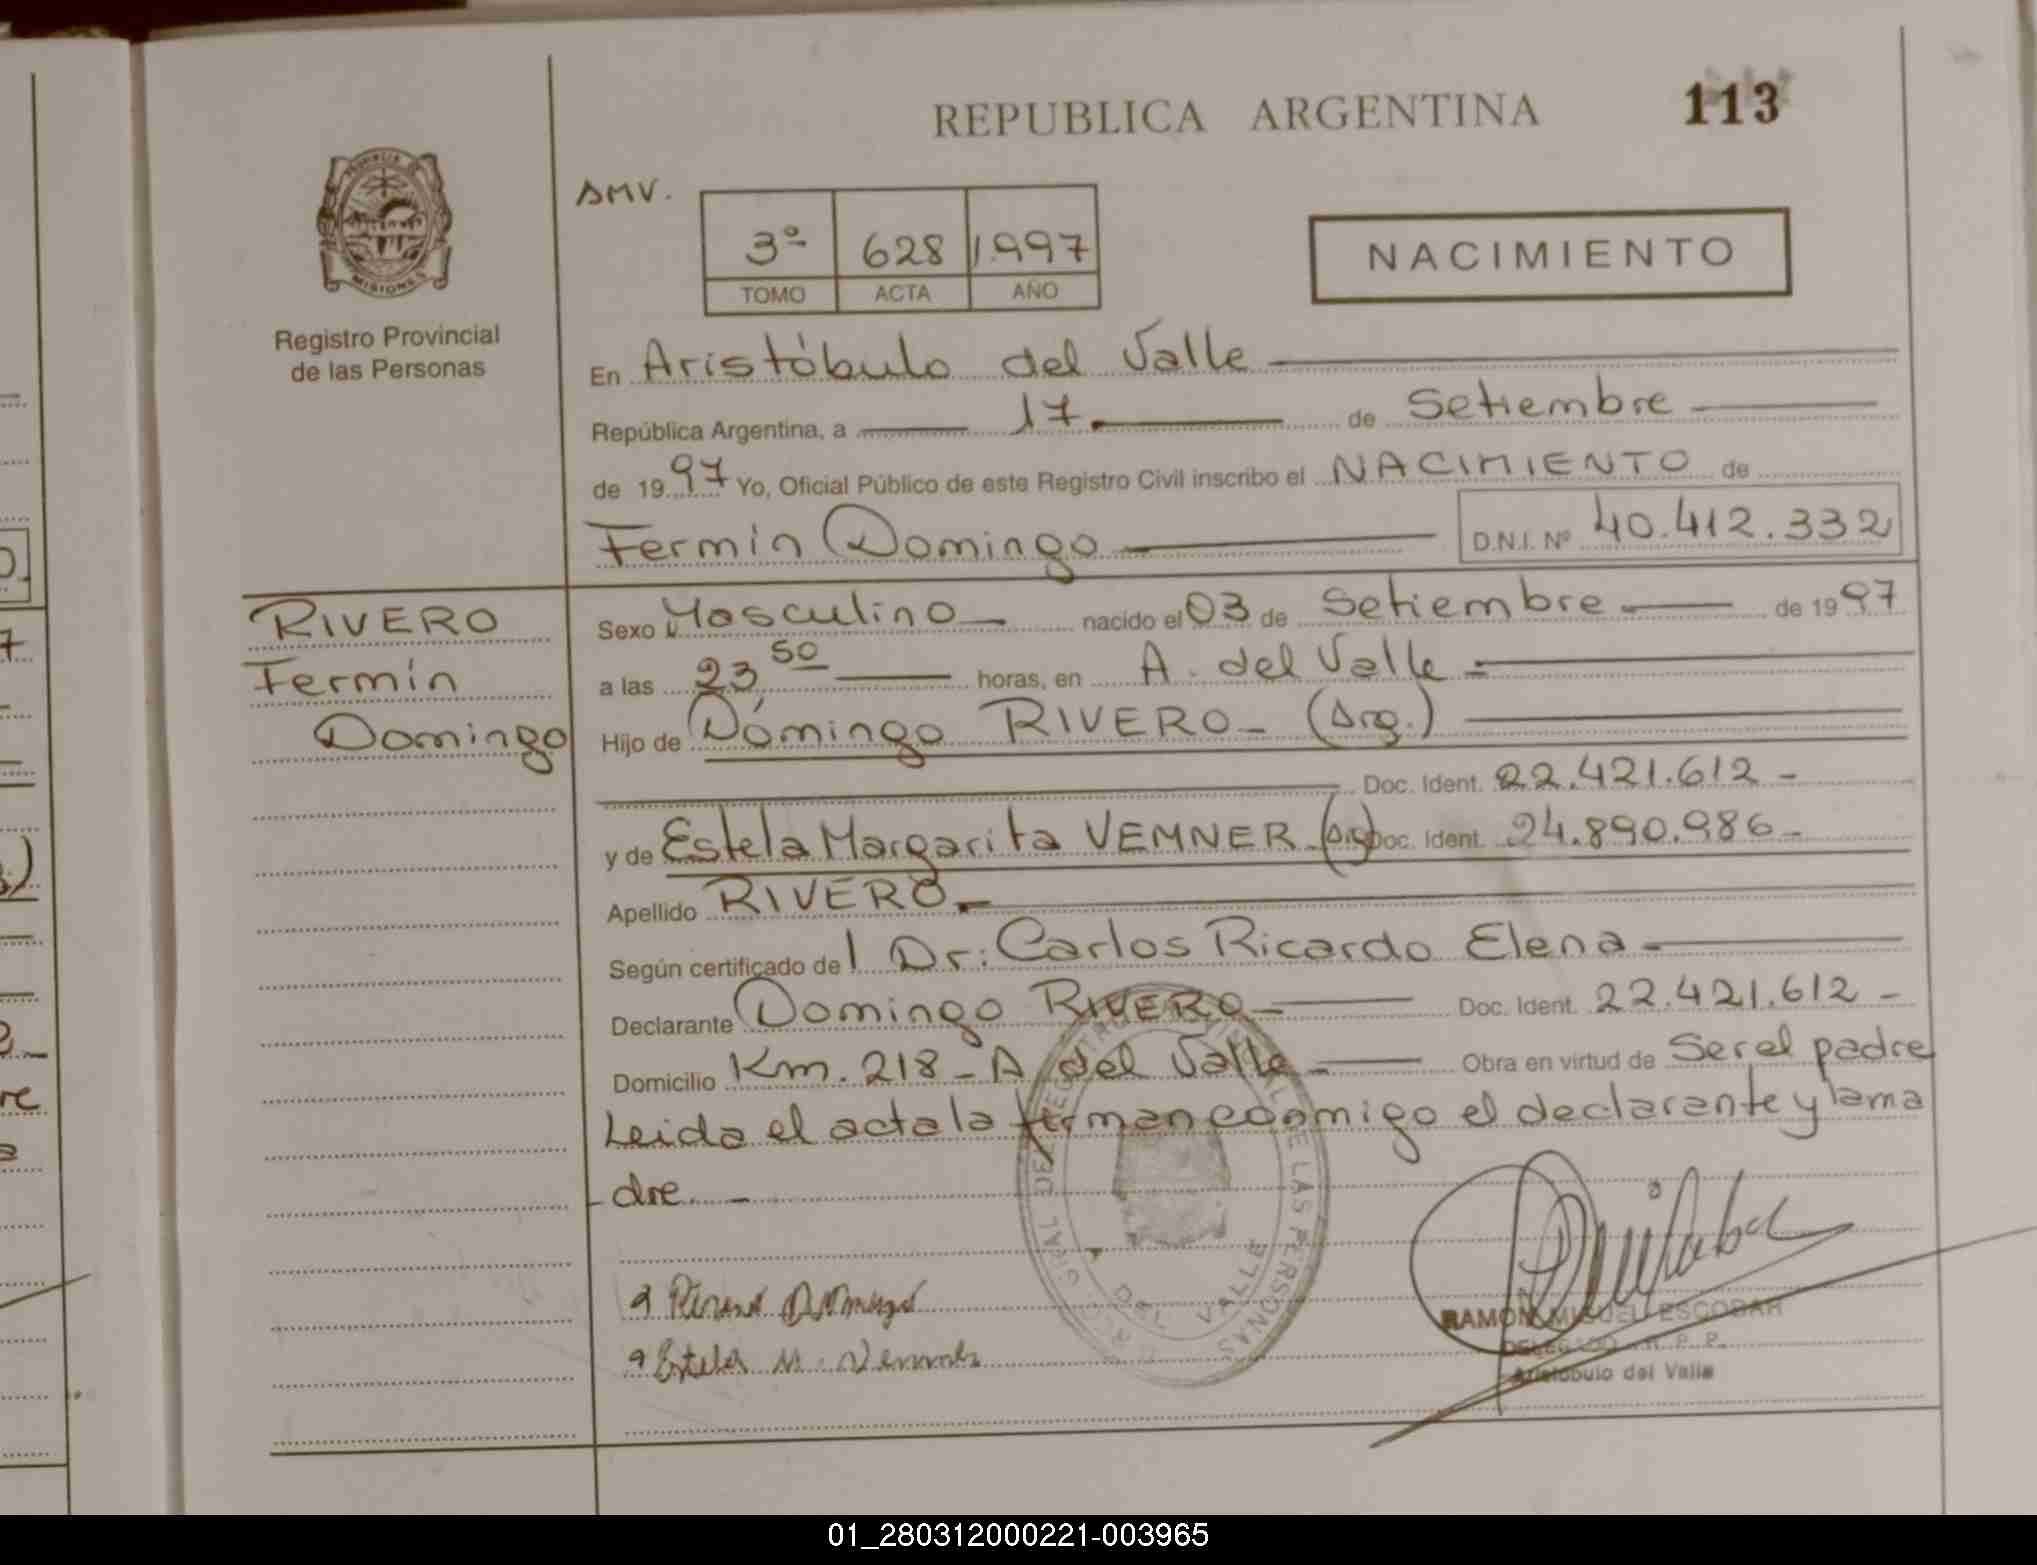 REPUBLICA ARGENTINA 113
AMV.
3º 628 1.997
TOMO ACTA AÑO
NACIMIENTO
MISIONES
Registro Provincial
de las Personas
En Aristóbulo del Valle
República Argentina, a 17 de Setiembre
de 1997 Yo, Oficial Público de este Registro Civil inscribo el NACIMIENTO de
Fermín Domingo D.N.I. Nº 40.412.332
RIVERO
Fermín
Domingo
Sexo Masculino nacido el 03 de Setiembre de 1997
a las 23 50 horas, en A. del Valle
Hijo de Domingo RIVERO - (Arg.)
Doc. Ident. 22.421.612 -
y de Estela Margarita VEMNER (Arg) Doc. Ident. 24.890.986 -
Apellido RIVERO -
Según certificado del Dr: Carlos Ricardo Elena
Declarante Domingo RIVERO Doc. Ident. 22.421.612 -
Domicilio Km. 218 - A. del Valle - Obra en virtud de Ser el padre
Leida el acta la firman conmigo el declarante y la ma
- dre -
DE LAS PERSONAS
DEL VALLE
Estela M.
RAMON MIGUEL ESCOBAR
DELEGADO R. P. P.
Aristóbulo del Valle
01_280312000221-003965